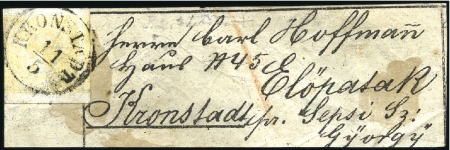 KRONSTADT
11
5
Herrn Carl Hoffmañ
Haus N 45
Elöpatak
Kronstadt pr. Sepsi Sz:
György